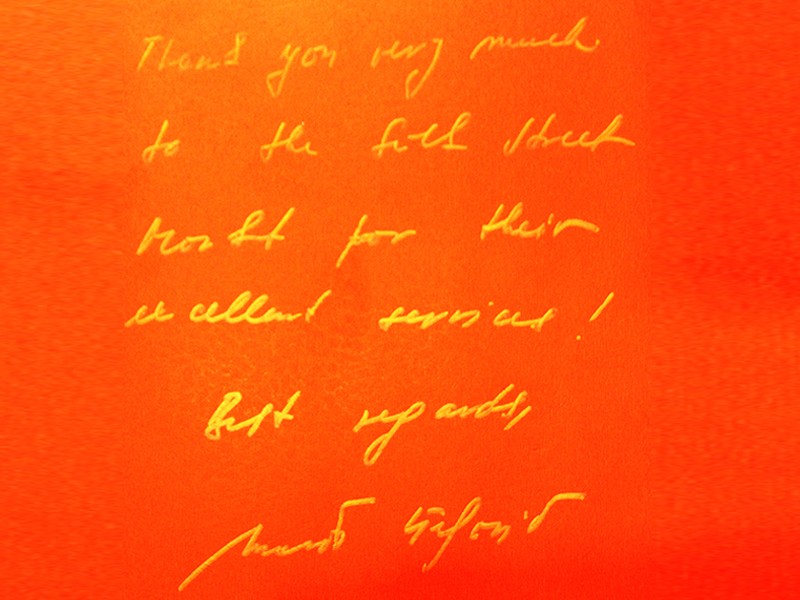 Thank you very much
to the Silk Street
for their
excellent services!
Best regards,